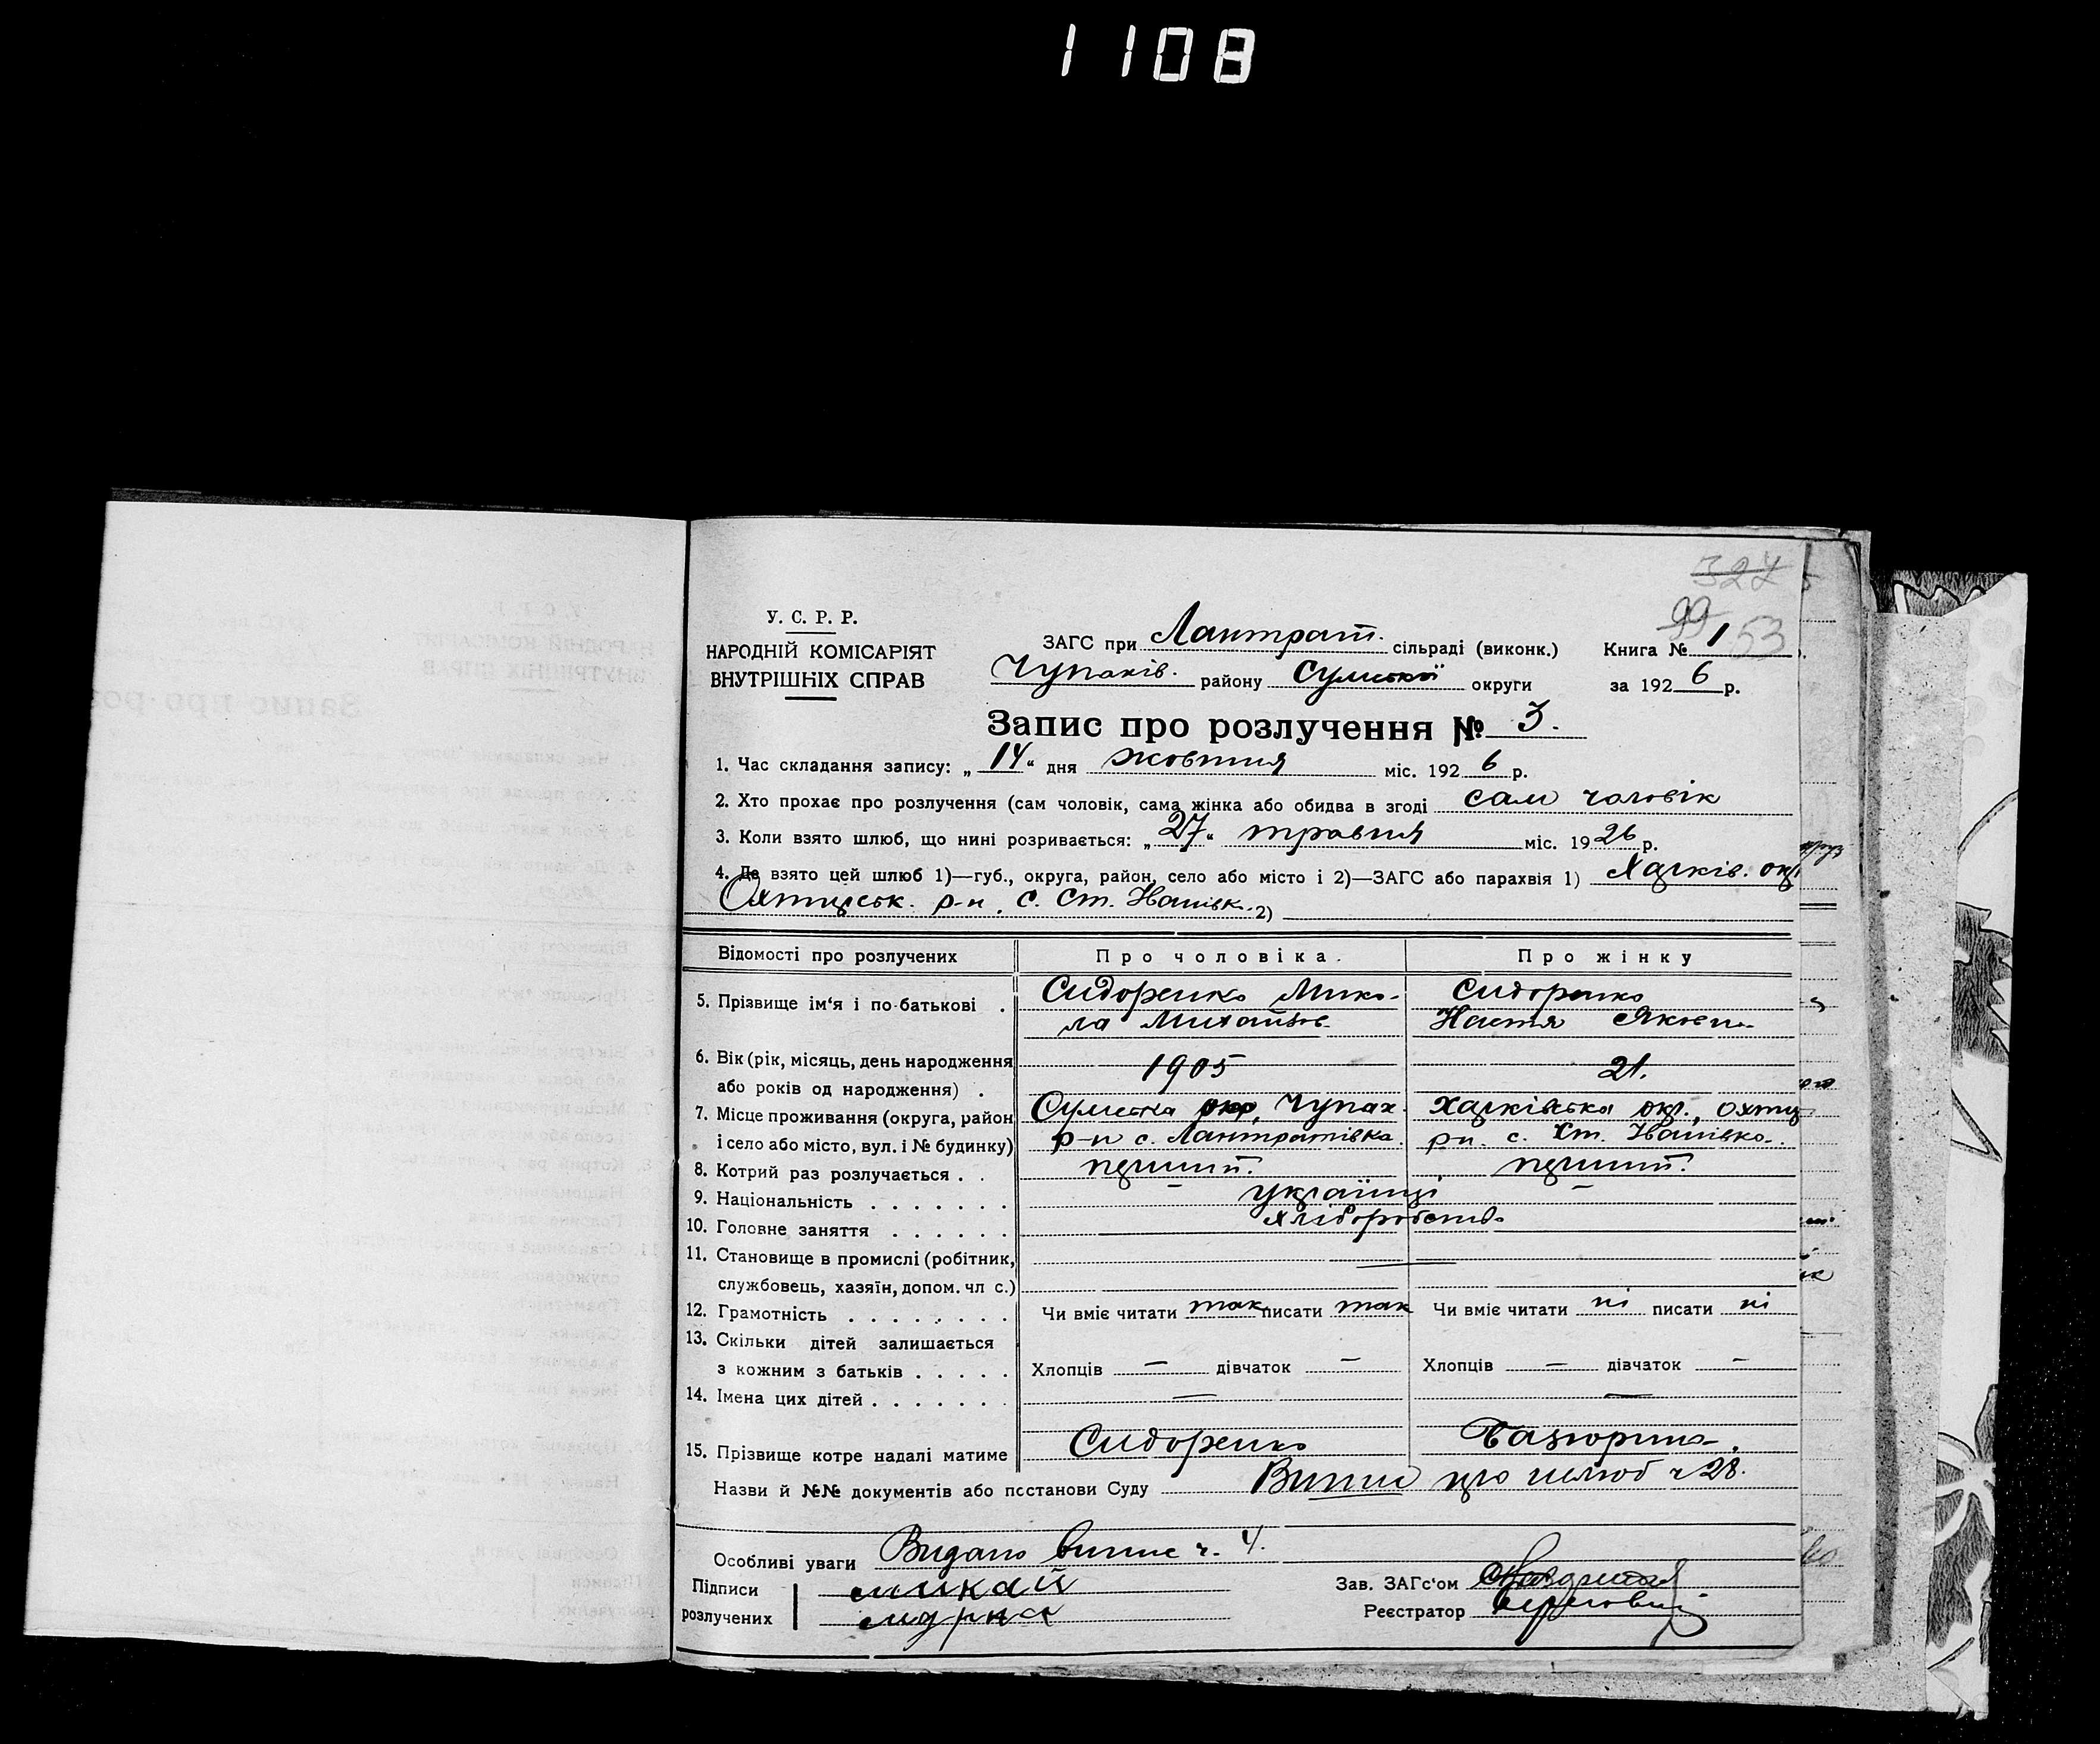 1108
327
99
53
У. С. Р. Р.
НАРОДНІЙ КОМІСАРІЯТ
ВНУТРІШНІХ СПРАВ
ЗАГС при Лантрат. сільраді (виконк.) Книга № 1
Чупахів. району Сумської округи за 1926 р.
Запис про розлучення № 3.
1. Час складання запису: „14“ дня жовтня міс. 1926 р.
2. Хто прохає про розлучення (сам чоловік, сама жінка або обидва в згоді сам чоловік
3. Коли взято шлюб, що нині розривається: „27“ травня міс. 1926 р.
4. Де взято цей шлюб 1)—губ., округа, район, село або місто і 2)—ЗАГС або парахвія 1) Харків. окр.
Охтирськ. р-н. с. Ст. Іванівк. 2)
Відомості про розлучених Про чоловіка. Про жінку
5. Прізвище ім‘я і по-батькові . Сидоренко Мико- Сидоренко
ла Михайлов. Настя Яковл.
6. Вік (рік, місяць, день народження
або років од народження) . 1905 21.
7. Місце проживання (округа, район Сумська окр, Чупах. Харківська окр., Охтир
і село або місто, вул. і № будинку) р-н с. Лантратівка. рн. с. Ст. Іванівка.
8. Котрий раз розлучається . . перший. перший.
9. Національність . . . . . . . — українці —
10. Головне заняття . . . . . . хліборобство
11. Становище в промислі (робітник,
службовець, хазяїн, допом. чл с.) —
12. Грамотність . . . . . . . . Чи вміє читати так писати так Чи вміє читати ні писати ні
13. Скільки дітей залишається
з кожним з батьків . . . . . Хлопців — дівчаток — Хлопців — дівчаток —
14. Імена цих дітей . . . . . . . — —
15. Прізвище котре надалі матиме Сидоренко
Назви й №№ документів або постанови Суду Випис про шлюб ч 28.
Особливі уваги Видано випис ч. 4.
Підписи
розлучених
Зав. ЗАГс‘ом
Реєстратор